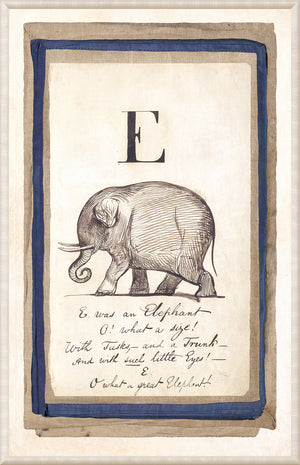 E
E was an Elephant
O! what a size!
With Tusks,– and a Trunk–
And with such little Eyes!–
E
O what a great Elephant!